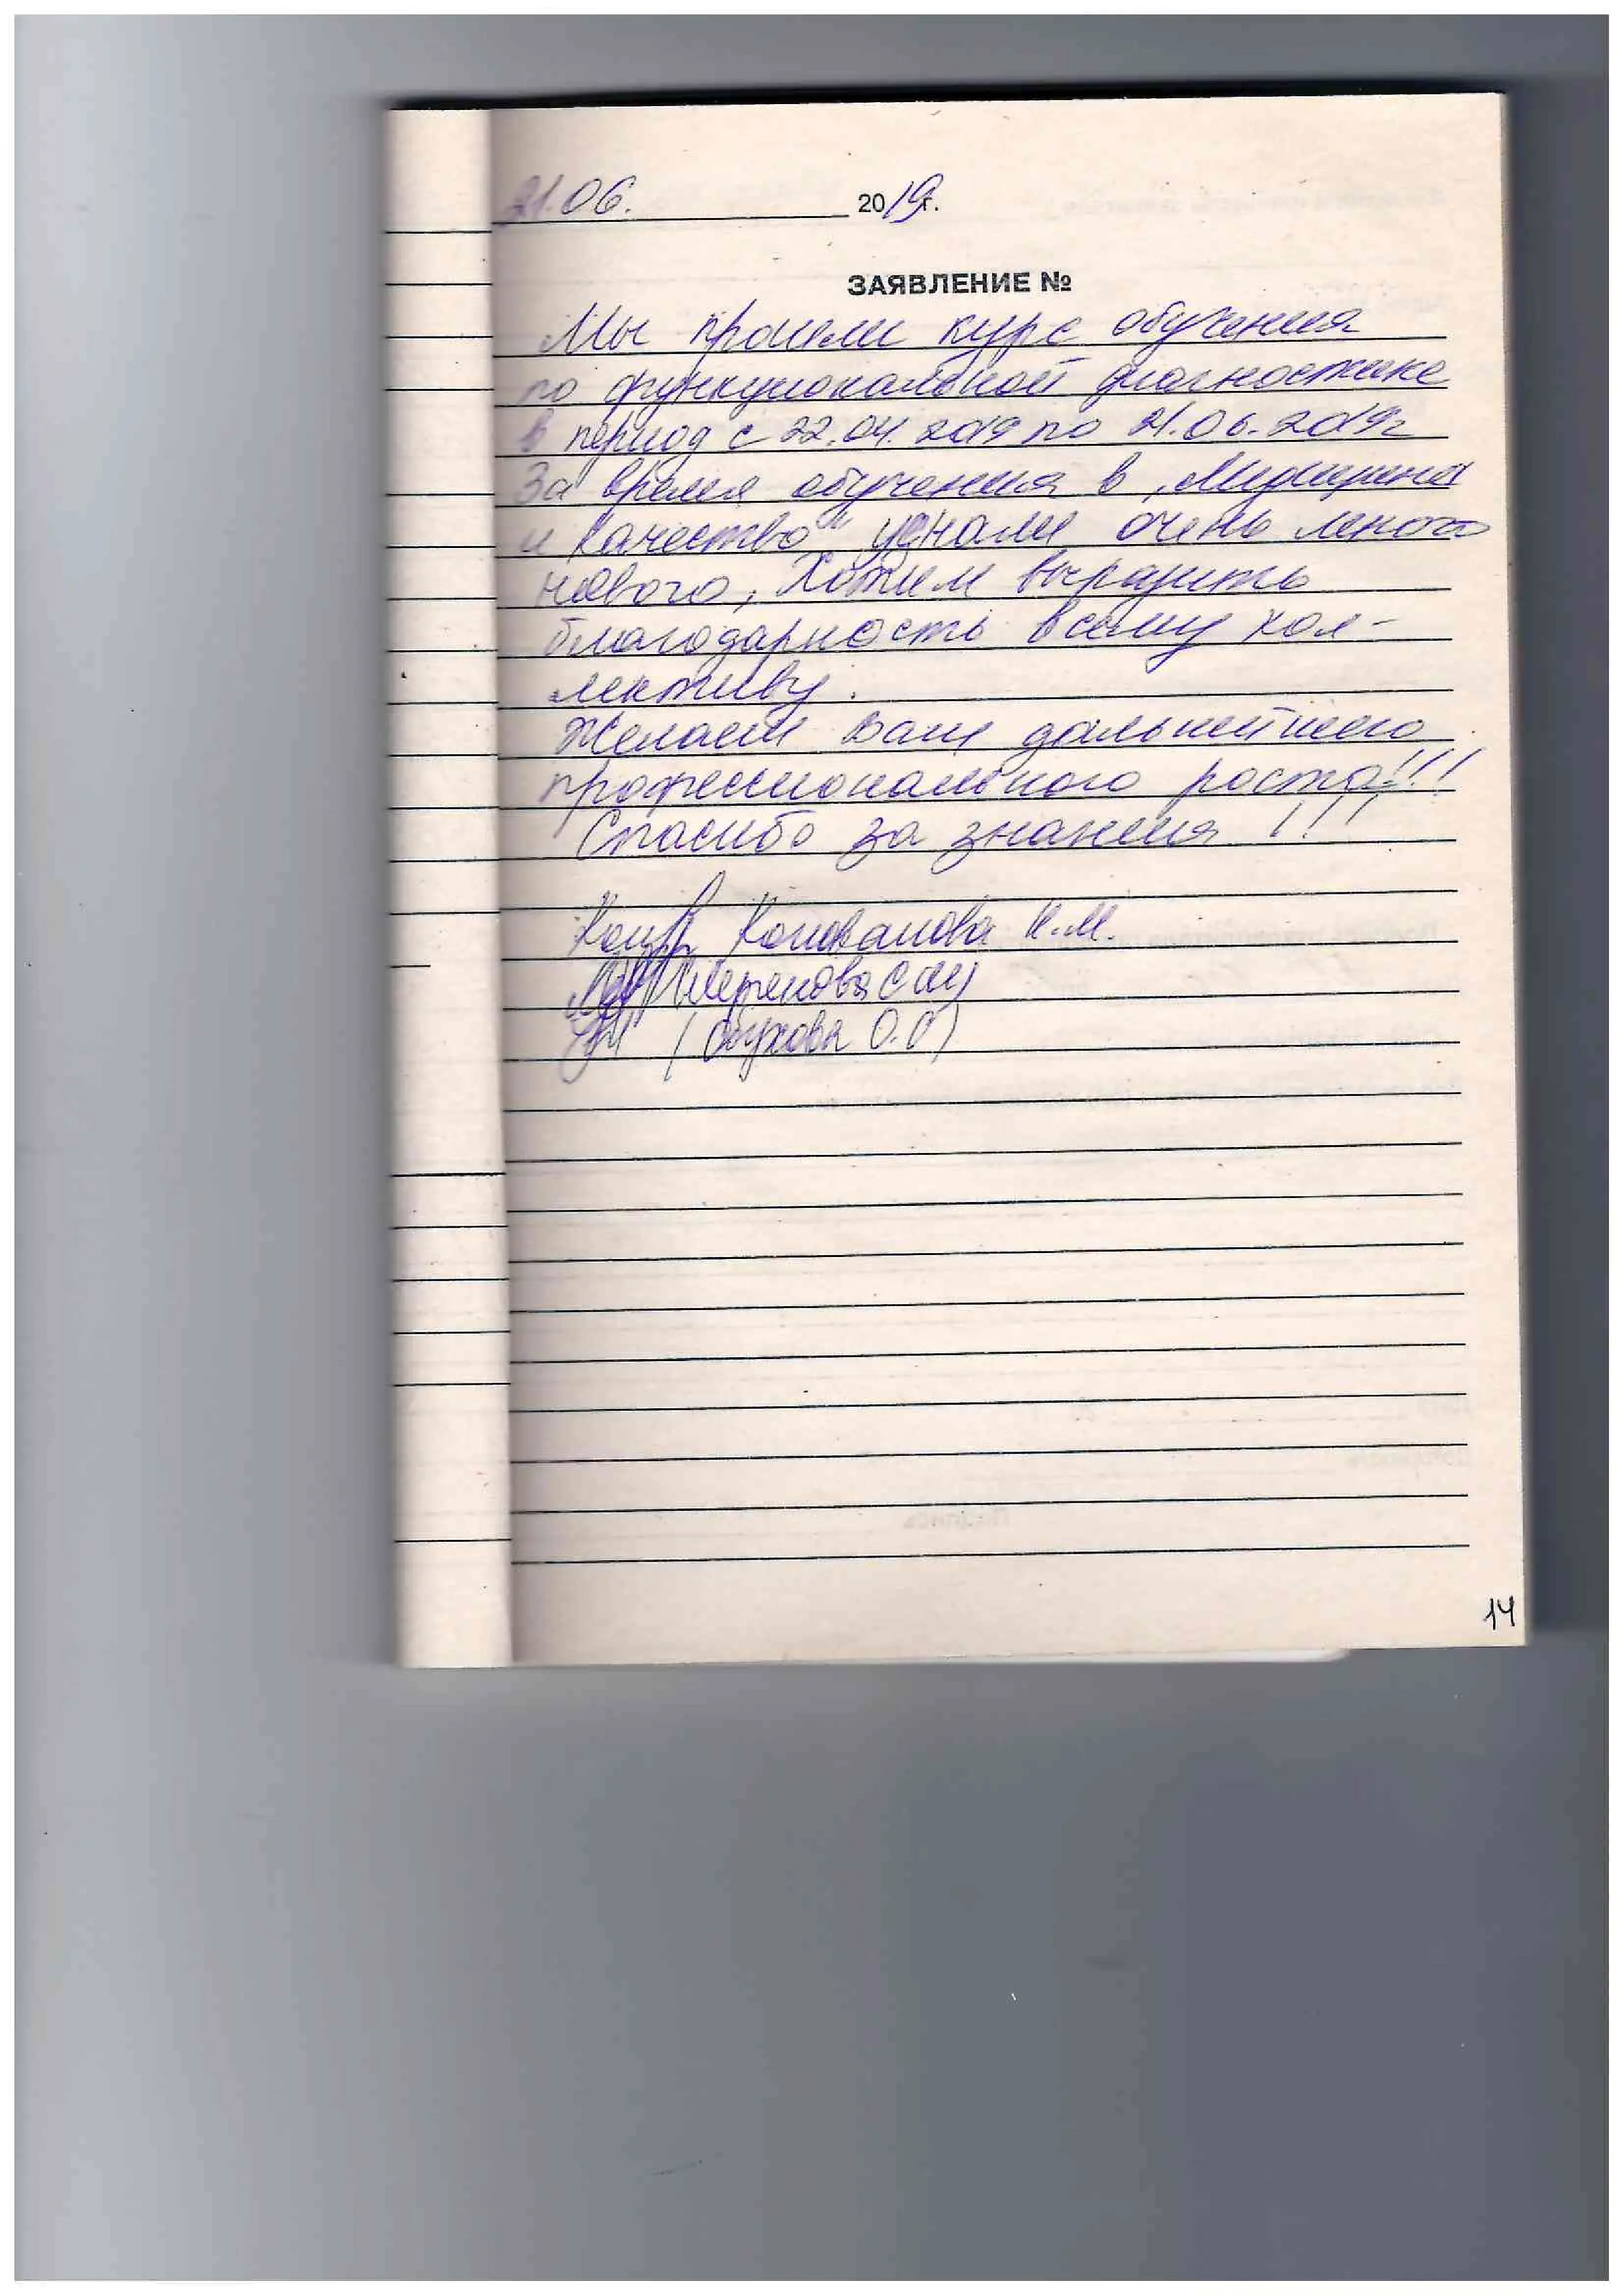 21.06. 2019г.
ЗАЯВЛЕНИЕ №
Мы прошли курс обучения
по функциональной диагностике
в период с 22.04.2019 по 21.06.2019г
За время обучения в "Медицина
и качество" узнали очень много
нового, Хотим выразить
благодарность всему кол-
лективу.
Желаем Вам дальнейшего
профессионального роста!!!
Спасибо за знания !!!
Коновалова И.М.
(Обухова О.С)
14